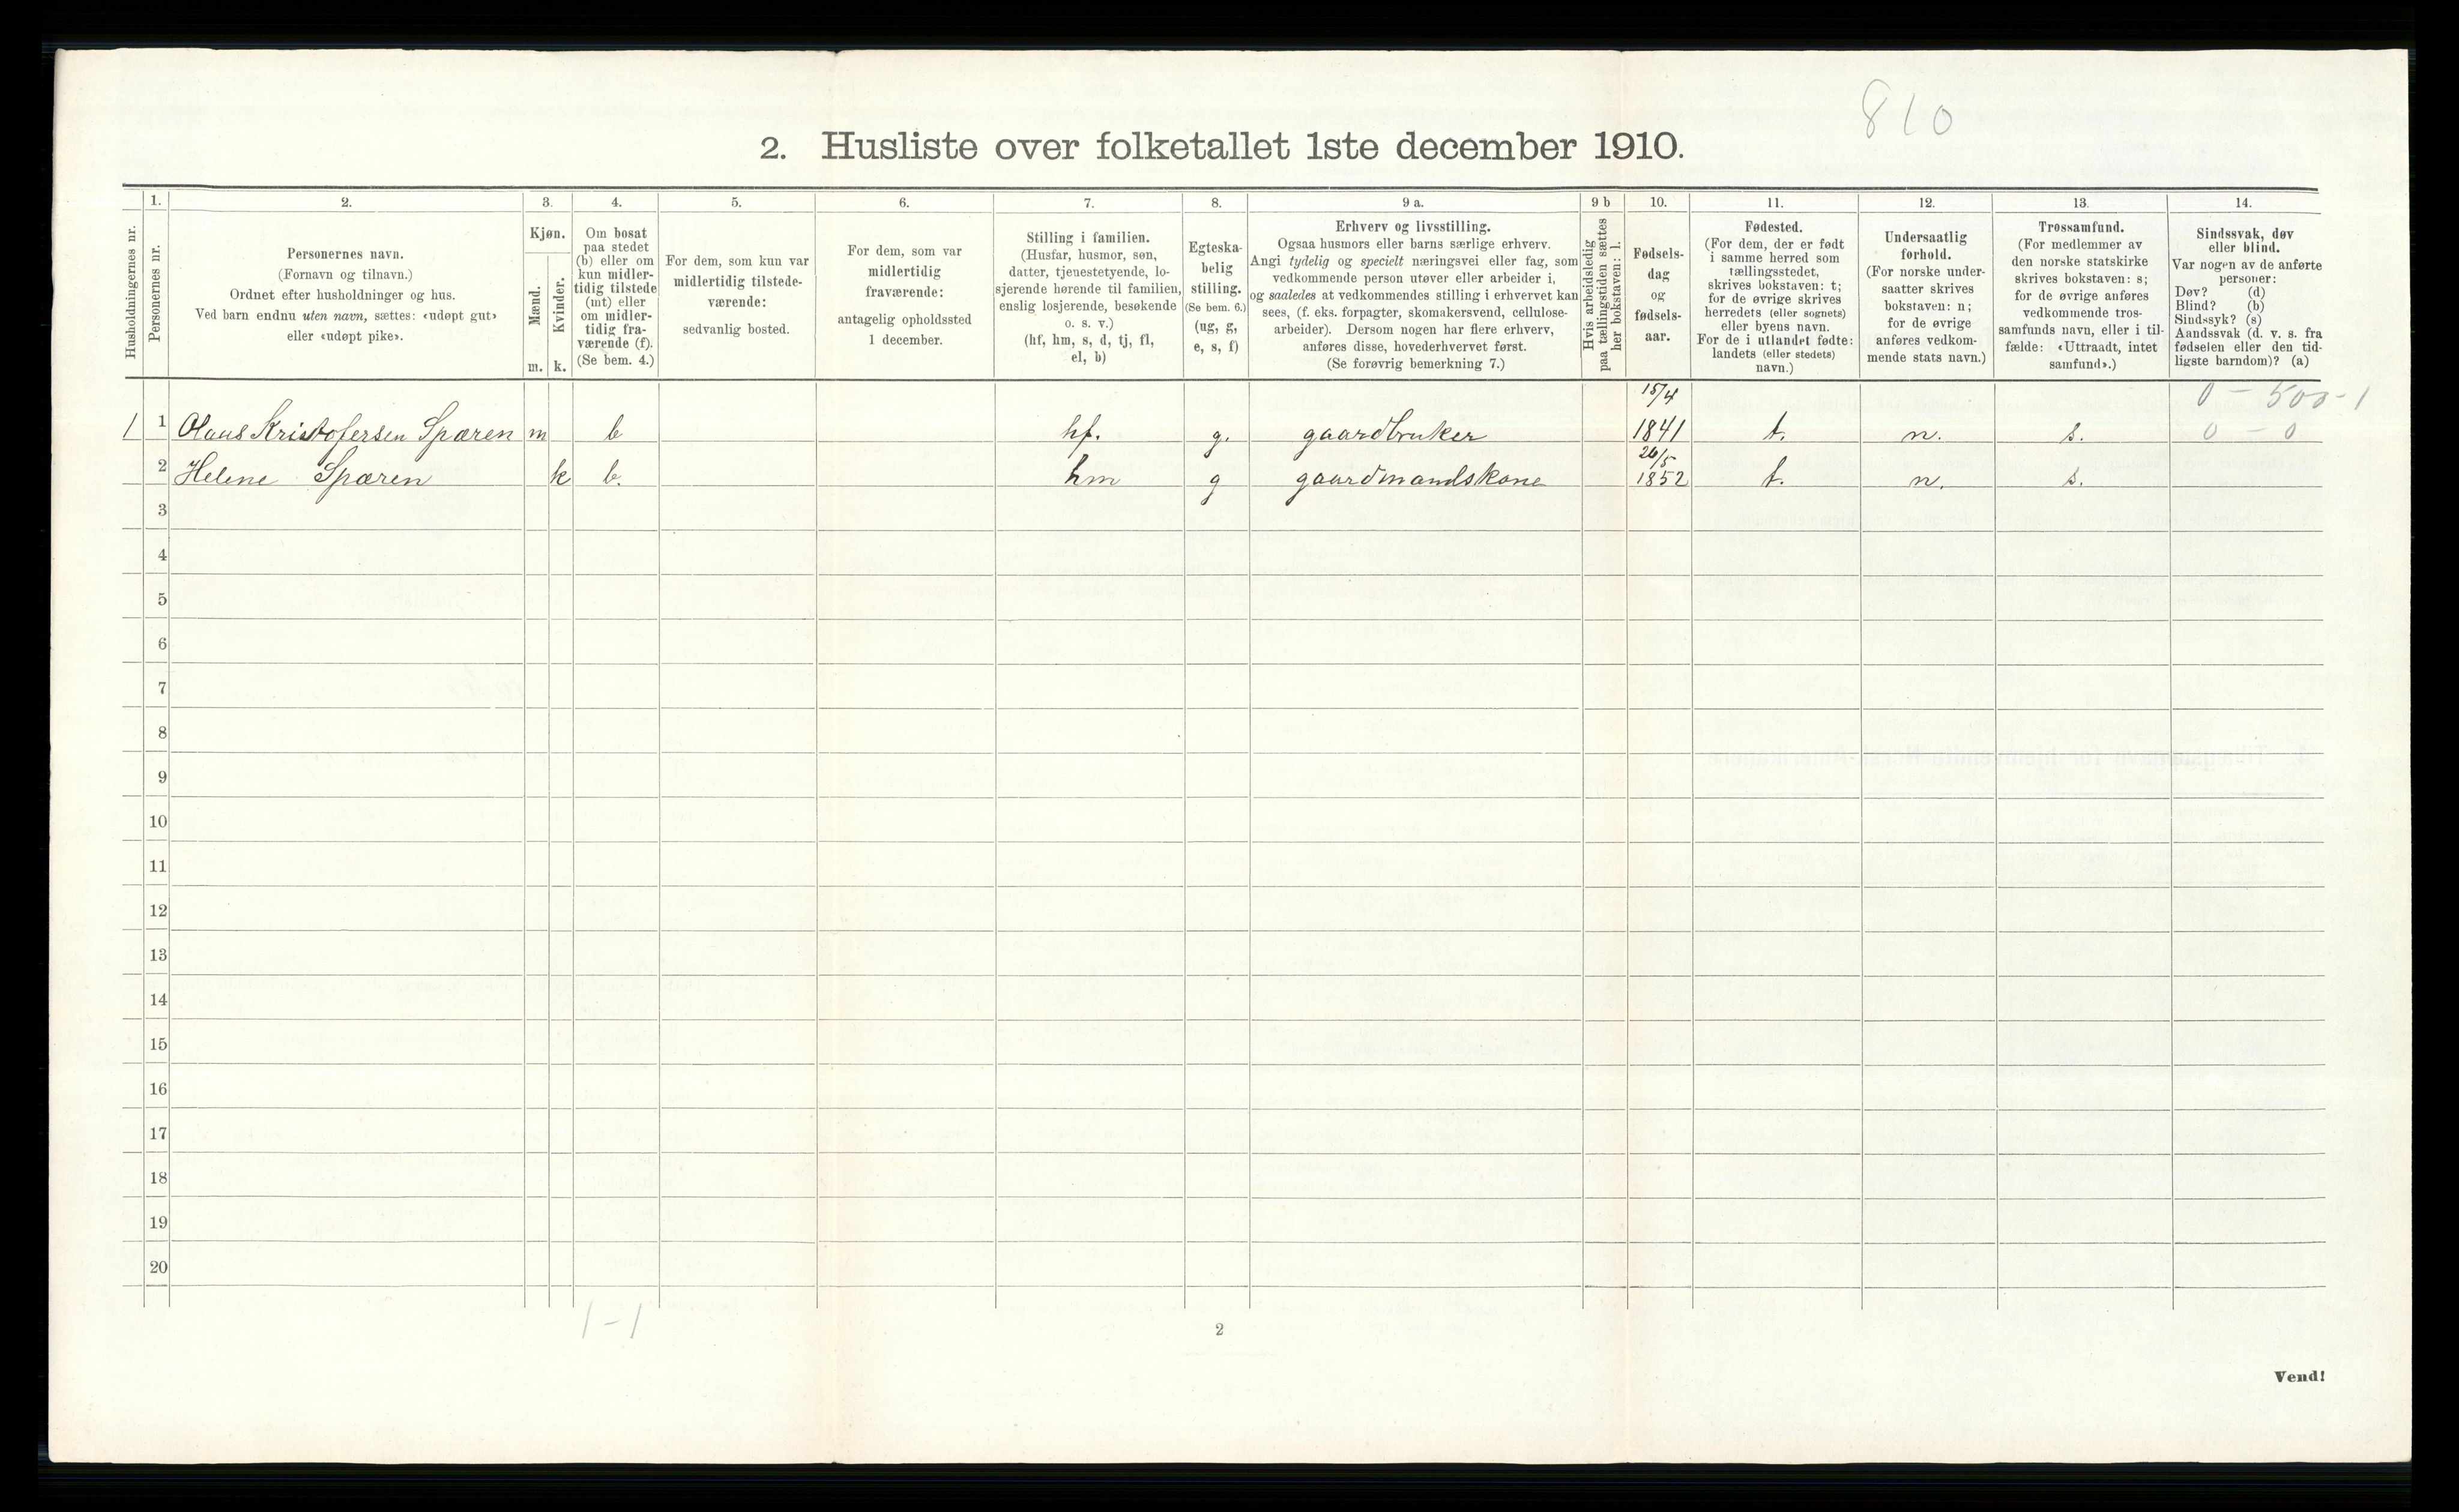 810
2. Husliste over folketallet 1ste december 1910.
Husholdningernes nr.
1.
Personernes nr.
2.
Personernes navn.
(Fornavn og tilnavn.)
Ordnet efter husholdninger og hus.
Ved barn endnu uten navn, sættes: «udøpt gut»
eller «udøpt pike».
3.
Kjøn.
Mænd.
Kvinder.
m. k.
4.
Om bosat
paa stedet
(b) eller om
kun midler-
tidig tilstede
(mt) eller
om midler-
tidig fra-
værende (f).
(Se bem. 4.)
5.
For dem, som kun var
midlertidig tilstede-
værende:
sedvanlig bosted.
6.
For dem, som var
midlertidig
fraværende:
antagelig opholdssted
1 december.
7.
Stilling i familien.
(Husfar, husmor, søn,
datter, tjenestetyende, lo-
sjerende hørende til familien,
enslig losjerende, besøkende
o. s. v.)
(hf, hm, s, d, tj, fl,
el, b)
8.
Egteska-
belig
stilling.
(Se bem. 6.)
(ug, g,
e, s, f)
9 a.
Erhverv og livsstilling.
Ogsaa husmors eller barns særlige erhverv.
Angi tydelig og specielt næringsvei eller fag, som
vedkommende person utøver eller arbeider i,
og saaledes at vedkommendes stilling i erhvervet kan
sees, (f. eks. forpagter, skomakersvend, cellulose-
arbeider). Dersom nogen har flere erhverv,
anføres disse, hovederhvervet først.
(Se forøvrig bemerkning 7.)
9 b
Hvis arbeidsledig
paa tællingstiden sættes
her bokstaven: l.
10.
Fødsels-
dag
og
fødsels-
aar.
11.
Fødested.
(For dem, der er født
i samme herred som
tællingsstedet,
skrives bokstaven: t;
for de øvrige skrives
herredets (eller sognets)
eller byens navn.
For de i utlandet fødte:
landets (eller stedets)
navn.)
12.
Undersaatlig
forhold.
(For norske under-
saatter skrives
bokstaven: n;
for de øvrige
anføres vedkom-
mende stats navn.)
13.
Trossamfund.
(For medlemmer av
den norske statskirke
skrives bokstaven: s;
for de øvrige anføres
vedkommende tros-
samfunds navn, eller i til-
fælde: «Uttraadt, intet
samfund».)
14.
Sindssvak, døv
eller blind.
Var nogen av de anførte
personer:
Døv? (d)
Blind? (b)
Sindssyk? (s)
Aandssvak (d. v. s. fra
fødselen eller den tid-
ligste barndom)? (a)
15/4 0 - 500-1
1 1 Olaus Kristofersen Spæren m b hf. g. gaardbruker 1841 t. n. s. 0 - 0
26/5
2 Helene Spæren k b. hm g gaardmandskone 1852 t. n. s.
3
4
5
6
7
8
9
10
11
12
13
14
15
16
17
18
19
20
1-1
2
Vend!